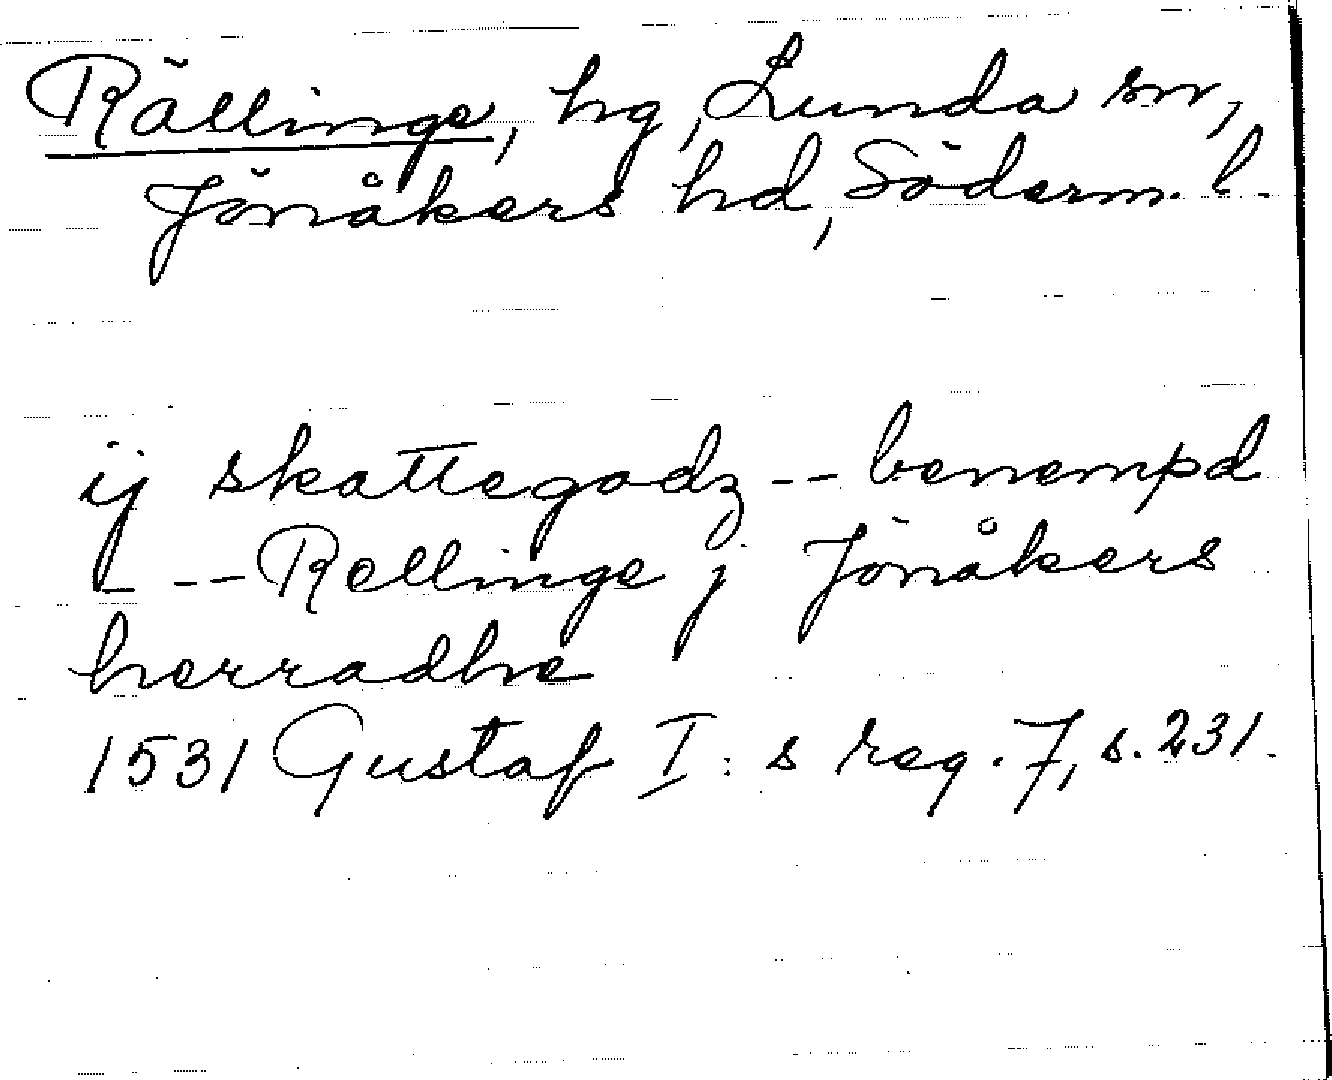 Rällinge, hg, Lunda sn,
Jönåkers hd, Söderm. l.
ij skattegodz -- benempd
--- Rellinge j Jönåkers
herradhe
1531 Gustaf I:s reg. 7, s. 231.